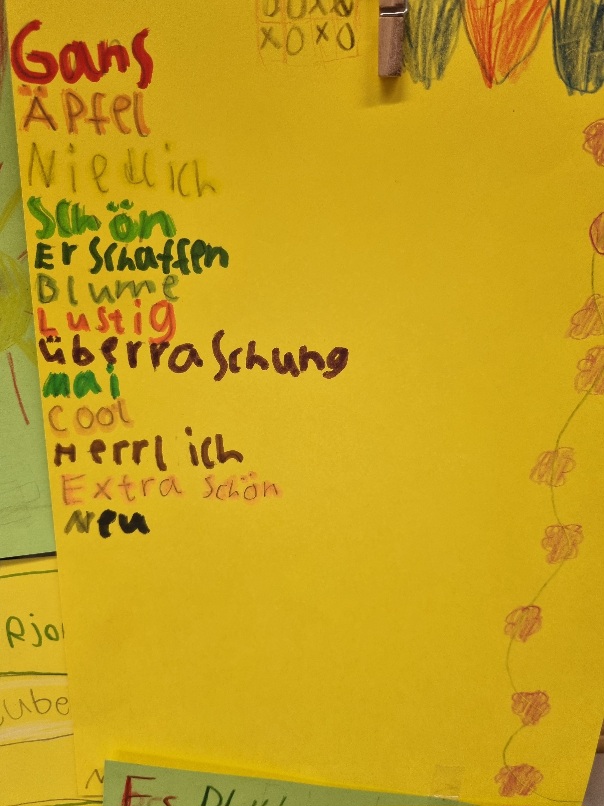 OOXX
XOXO
Gans
Äpfel
Niedlich
Schön
Erschaffen
Blume
Lustig
Überraschung
mai
cool
Herrlich
Extra Schön
Neu